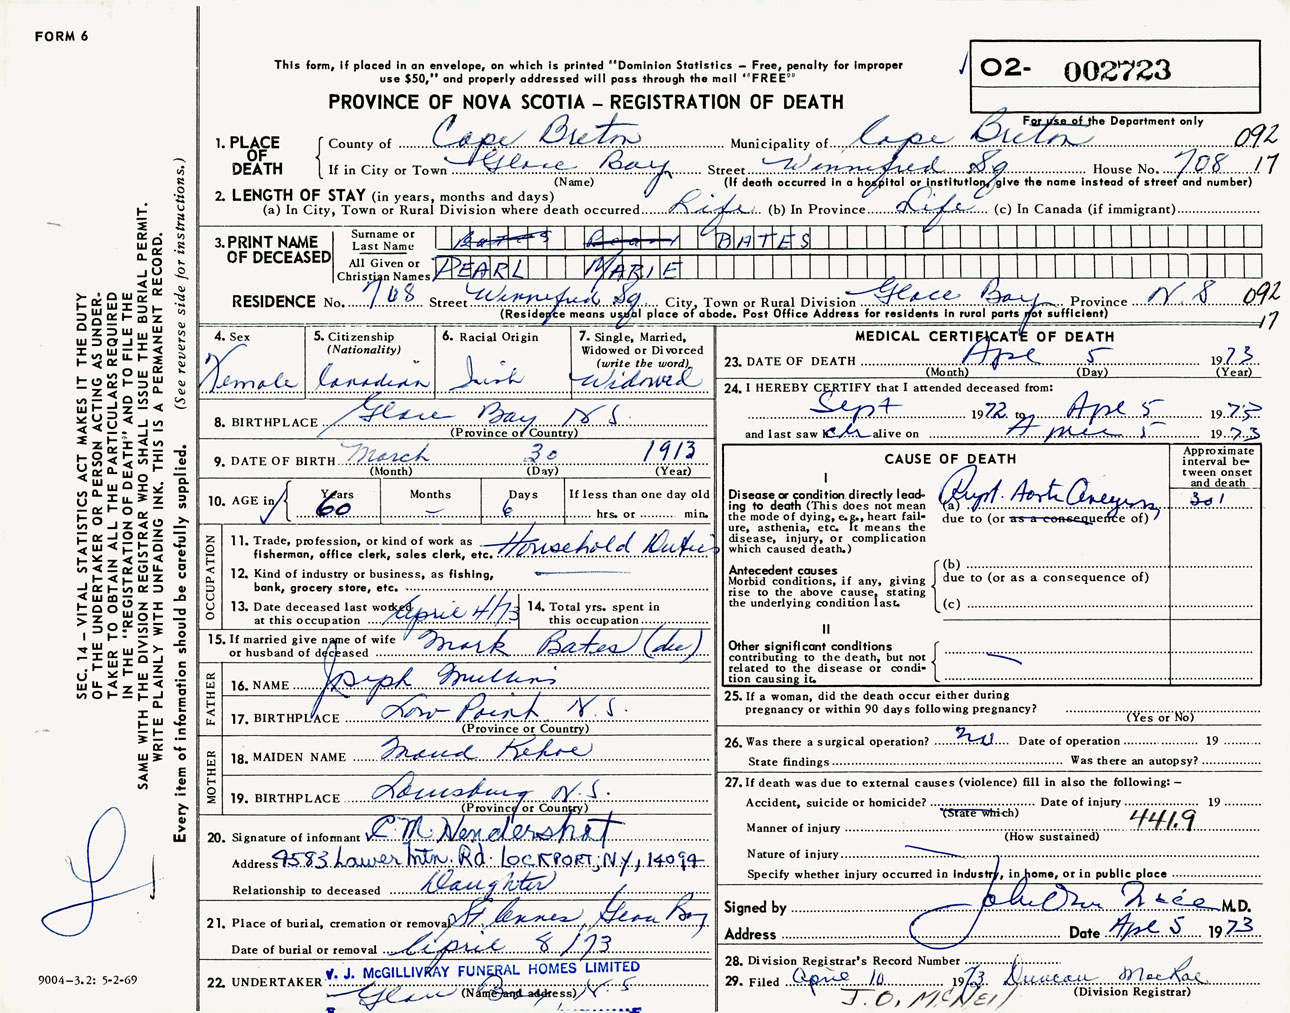 FORM 6
This form, if placed in an envelope, on which is printed "Dominion Statistics – Free, penalty for improper
use $50," and properly addressed will pass through the mail "FREE"
O2- 002723
PROVINCE OF NOVA SCOTIA – REGISTRATION OF DEATH
For use of the Department only
1. PLACE OF DEATH
County of Cape Breton Municipality of Cape Breton 092
If in City or Town Glace Bay Street Winnefred Sq House No. 708 17
(Name) (If death occurred in a hospital or institution, give the name instead of street and number)
2. LENGTH OF STAY (in years, months and days)
(a) In City, Town or Rural Division where death occurred Life (b) In Province Life (c) In Canada (if immigrant)
3. PRINT NAME OF DECEASED
Surname or Last Name Bates Pearl BATES
All Given or Christian Names PEARL MARIE
RESIDENCE No. 708 Street Winnefred Sq City, Town or Rural Division Glace Bay Province N.S 092
(Residence means usual place of abode. Post Office Address for residents in rural parts not sufficient) 17
4. Sex Female
5. Citizenship (Nationality) Canadian
6. Racial Origin Irish
7. Single, Married, Widowed or Divorced (write the word) Widowed
8. BIRTHPLACE Glace Bay N S
(Province or Country)
9. DATE OF BIRTH March 30 1913
(Month) (Day) (Year)
10. AGE in Years 60 Months – Days 6 If less than one day old
hrs. or min.
OCCUPATION
11. Trade, profession, or kind of work as Household Duties
fisherman, office clerk, sales clerk, etc.
12. Kind of industry or business, as fishing,
bank, grocery store, etc.
13. Date deceased last worked at this occupation April 4/73
14. Total yrs. spent in this occupation
15. If married give name of wife or husband of deceased Mark Bates (dec)
FATHER
16. NAME Joseph Mullins
17. BIRTHPLACE Low Point N.S.
(Province or Country)
MOTHER
18. MAIDEN NAME Maud Kehoe
19. BIRTHPLACE Louisburg N.S.
(Province or Country)
20. Signature of informant C.M. Hendershot
Address 4583 Lower Mtn. Rd. LOCKPORT, N.Y., 14094
Relationship to deceased Daughter
21. Place of burial, cremation or removal St. Annes, Glace Bay
Date of burial or removal April 8/73
22. UNDERTAKER V. J. McGILLIVRAY FUNERAL HOMES LIMITED
Glace Bay N.S
(Name and address)
MEDICAL CERTIFICATE OF DEATH
23. DATE OF DEATH Apr 5 1973
(Month) (Day) (Year)
24. I HEREBY CERTIFY that I attended deceased from:
Sept 1972 to Apr 5 1973
and last saw her alive on April 5 1973
CAUSE OF DEATH
Approximate interval between onset and death
I
Disease or condition directly leading to death (This does not mean the mode of dying, e.g., heart failure, asthenia, etc. It means the disease, injury, or complication which caused death.)
(a) Rupt. Aortic Aneurysm
due to (or as a consequence of)
Antecedent causes
Morbid conditions, if any, giving rise to the above cause, stating the underlying condition last.
(b)
due to (or as a consequence of)
(c)
II
Other significant conditions
contributing to the death, but not related to the disease or condition causing it.
25. If a woman, did the death occur either during
pregnancy or within 90 days following pregnancy?
(Yes or No)
26. Was there a surgical operation? no Date of operation 19
State findings Was there an autopsy?
27. If death was due to external causes (violence) fill in also the following: –
Accident, suicide or homicide? Date of injury 19
(State which)
Manner of injury 441.9
(How sustained)
Nature of injury
Specify whether injury occurred in industry, in home, or in public place
Signed by M.D.
Address Date Apr 5 1973
28. Division Registrar's Record Number
29. Filed April 10 1973 Duncan MacRae
(Division Registrar)
J.O. MCNEIL
SEC. 14 – VITAL STATISTICS ACT MAKES IT THE DUTY
OF THE UNDERTAKER OR PERSON ACTING AS UNDER-
TAKER TO OBTAIN ALL THE PARTICULARS REQUIRED
IN THE "REGISTRATION OF DEATH" AND TO FILE THE
SAME WITH THE DIVISION REGISTRAR WHO SHALL ISSUE THE BURIAL PERMIT.
WRITE PLAINLY WITH UNFADING INK. THIS IS A PERMANENT RECORD.
Every item of information should be carefully supplied. (See reverse side for instructions.)
9004–3.2: 5-2-69